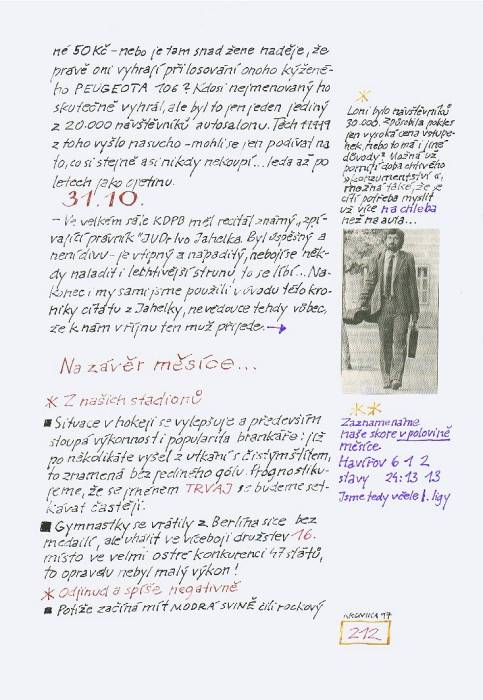 né 50 Kč – nebo je tam snad žene naděje, že
právě oni vyhrají při losování onoho kýžené-
ho PEUGEOTA 106? Kdosi nejmenovaný ho
skutečně vyhrál, ale byl to jen jeden jediný
z 20.000 návštěvníků autosalonu. Těch
z toho vyšlo nasucho – mohli se jen podívat na
to, co si stejně asi nikdy nekoupí... leda až po
letech jako ojetinu.
31.10.
– Ve velkém sále KDPB měl recitál známý „zpí-
vající právník" JUDr Ivo Jahelka. Byl úspěšný a
není divu – je vtipný a nápaditý, nebojí se něk-
dy naladit i lechtivější strunu, to se líbí... Na-
konec i my sami jsme použili v úvodu této kro-
niky citátu z Jahelky, nevedouce tehdy vůbec,
že k nám v říjnu ten muž přijede. →
Na závěr měsíce...
* Z našich stadionů
■ Situace v hokeji se vylepšuje a především
stoupá výkonnost i popularita brankáře: již
po několikáté vyšel z utkání s čistým štítem,
to znamená bez jediného gólu. Prognostiku-
jeme, že se jménem TRVAJ se budeme set-
kávat častěji.
■ Gymnastky se vrátily z Berlína sice bez
medailí, ale uhájit ve víceboji družstev 16.
místo ve velmi ostré konkurenci 47 států,
to opravdu nebyl malý výkon!
* Odjinud a spíše negativně
■ Potíže začíná mít MODRÁ SVINĚ čili rockový
*
Loni bylo návštěvníků
30 000. Způsobila pokles
jen vysoká cena vstupe-
nek, nebo to má i jiné
důvody? Možná už
pominula doba chtivého
konzumentství a,
možná také, že je
cítí potřeba myslit
už více na chleba
než na auta...
**
Zaznamenáme
naše skore v polovině
měsíce.
Havířov 6 1 2
stavy 24:13 13
Jsme tedy v čele I. ligy
KRONIKA 97
212